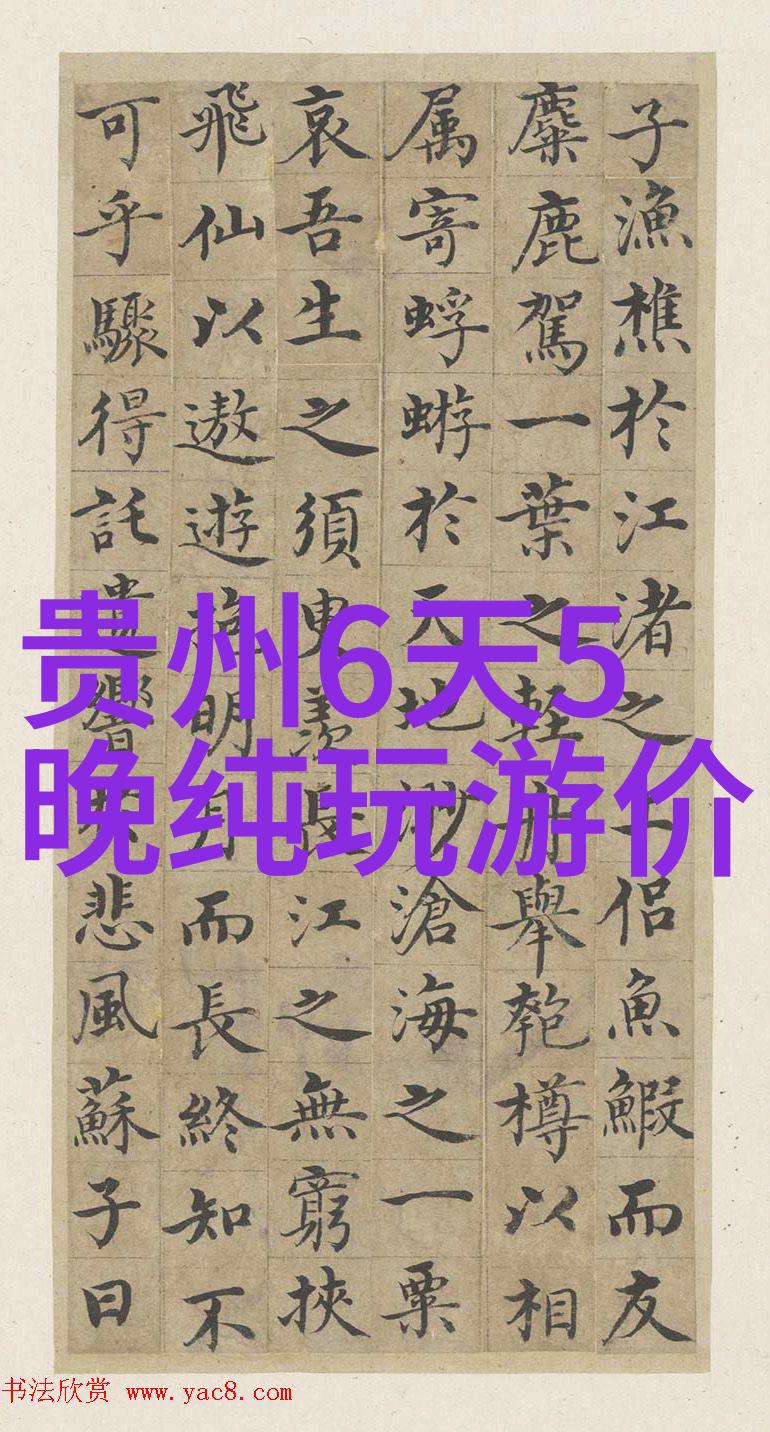 子漁樵於江渚之上侣魚鰕而友
麋鹿駕一葉之輕舟舉匏樽以相
属寄蜉蝣於天地渺滄海之一粟
哀吾生之須臾羨長江之無窮挾
飛仙以遨遊抱明月而長終知不
可乎驟得託遺響於悲風蘇子曰
贵州6天5
晚纯玩游价
书法欣赏 www.yac8.com